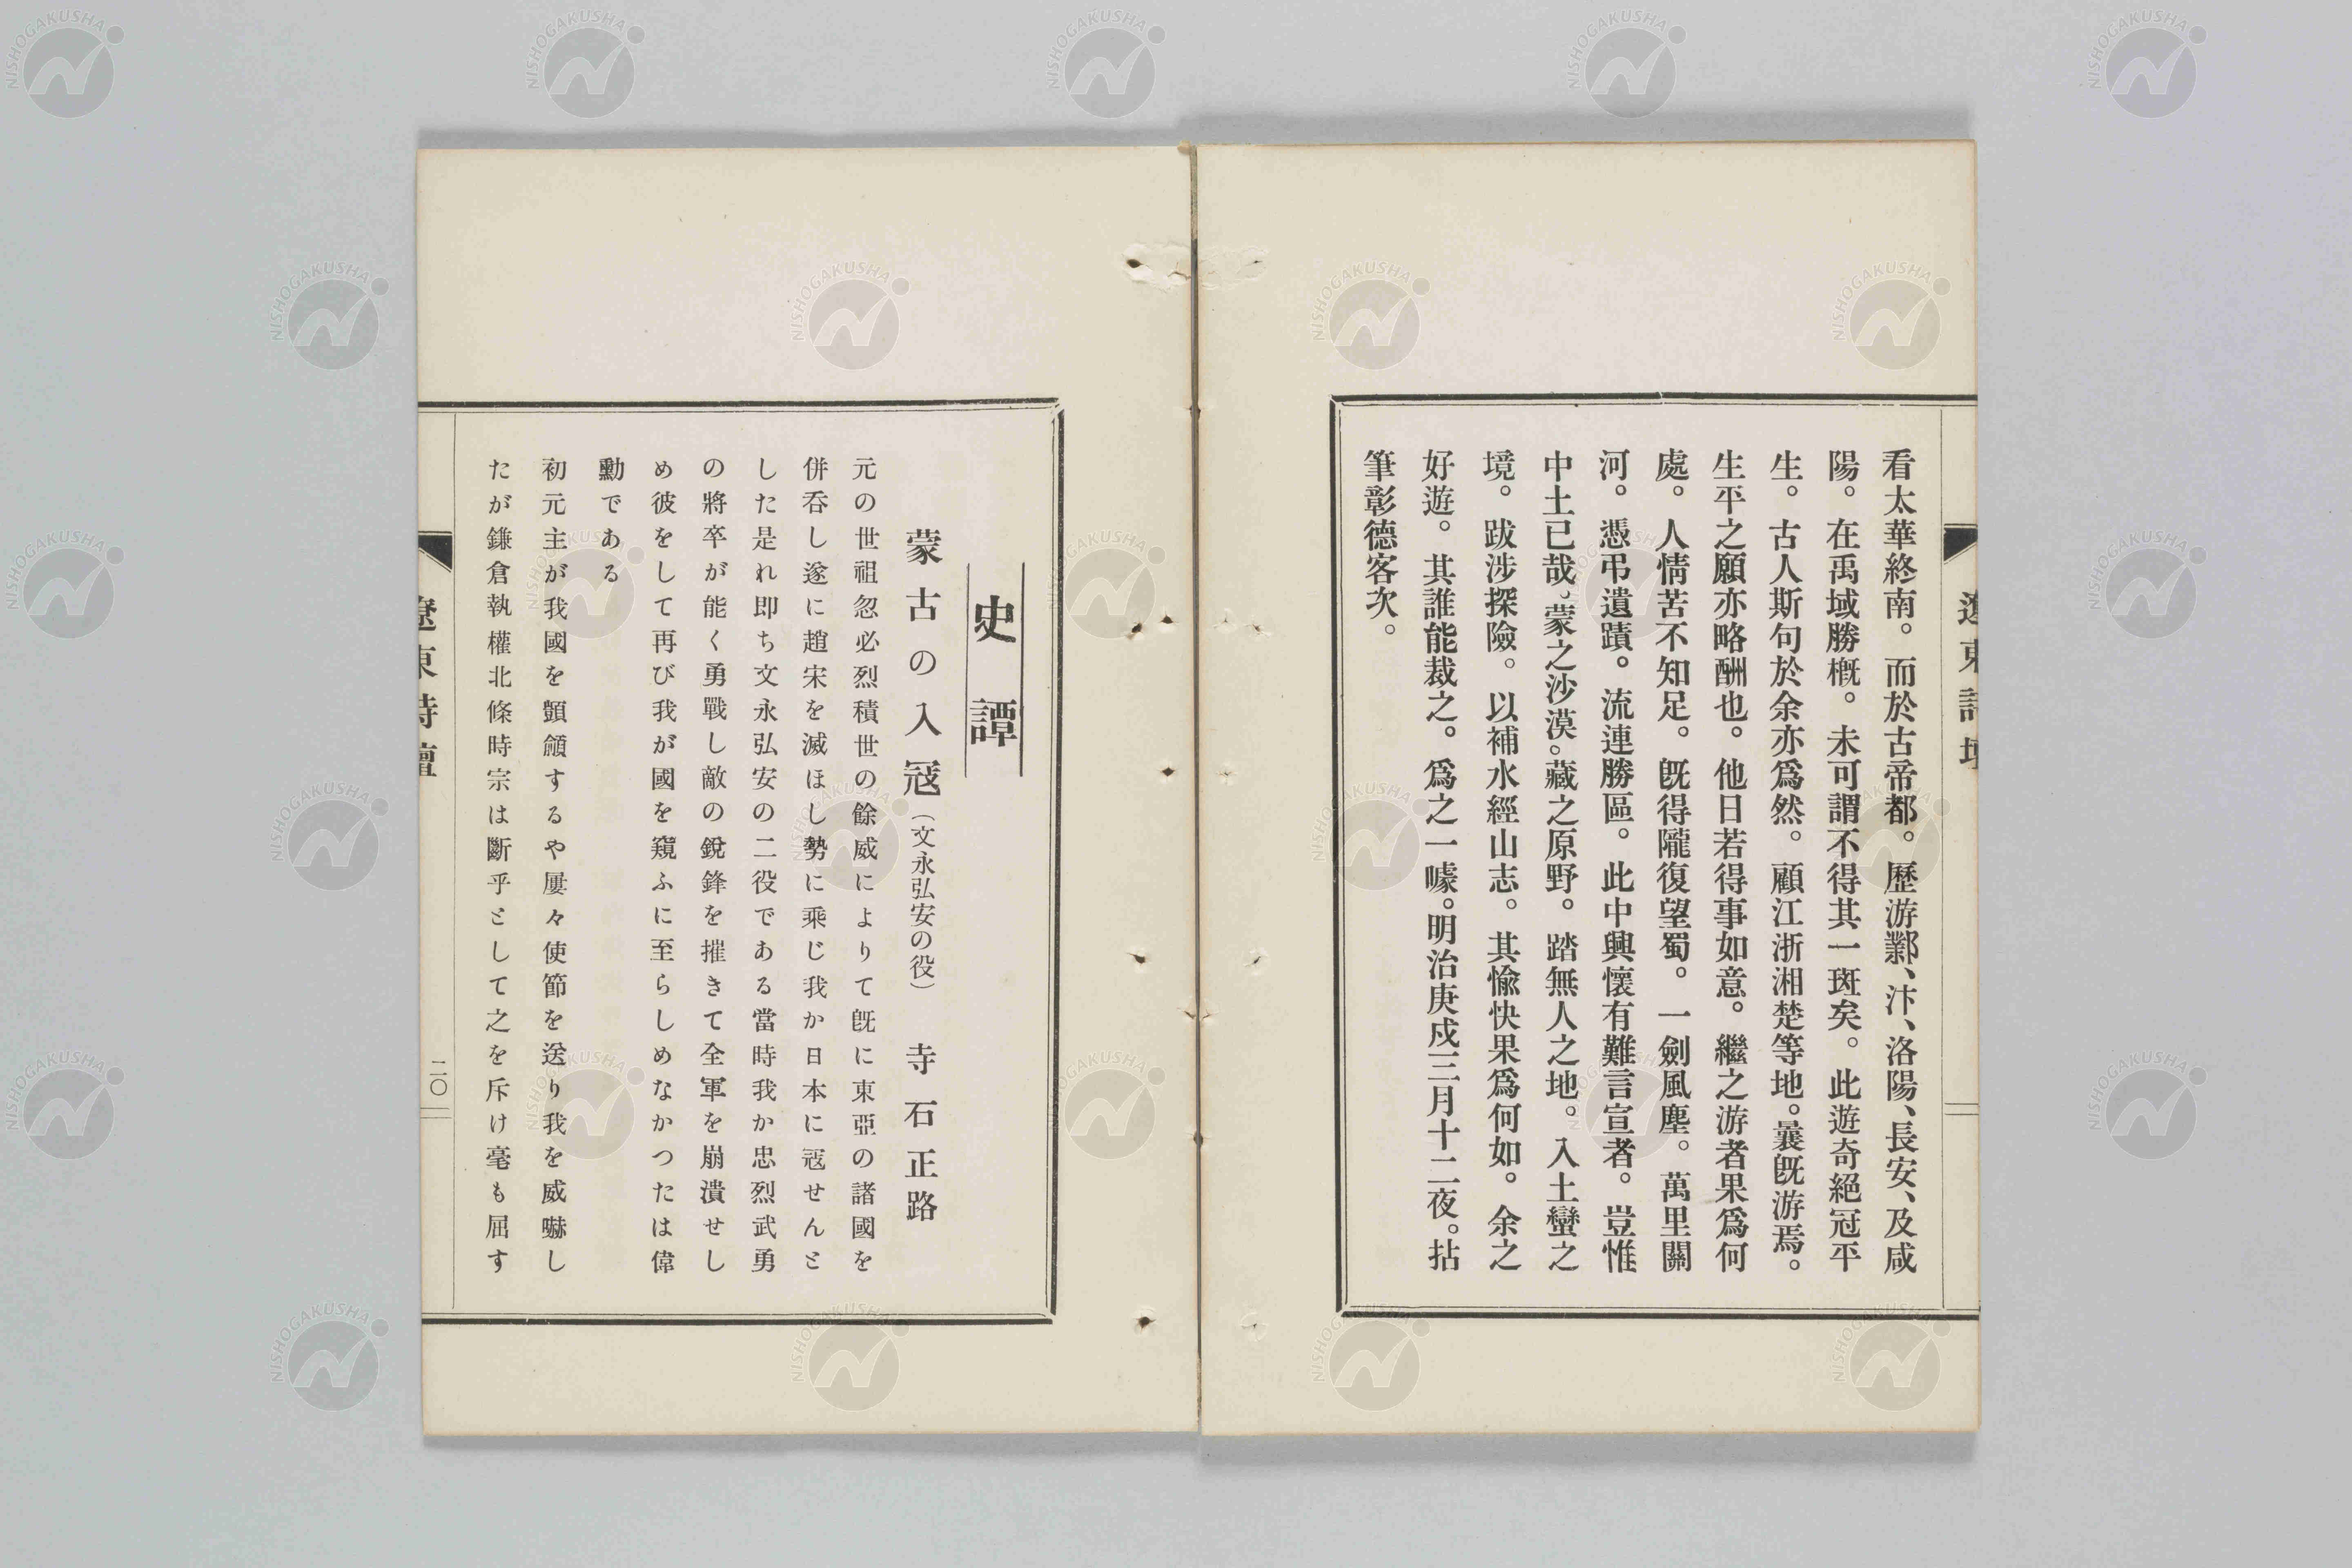 看太華終南。而於古帝都。歷游鄴、汴、洛陽、長安、及咸
陽。在禹域勝概。未可謂不得其一斑矣。此遊奇絕冠平
生。古人斯句於余亦爲然。顧江浙湘楚等地。曩旣游焉。
生平之願亦略酬也。他日若得事如意。繼之游者果爲何
處。人情苦不知足。旣得隴復望蜀。一劍風塵。萬里關
河。憑弔遺蹟。流連勝區。此中興懷有難言宣者。豈惟
中土已哉。蒙之沙漠。藏之原野。踏無人之地。入土蠻之
境。跋涉探險。以補水經山志。其愉快果爲何如。余之
好遊。其誰能裁之。爲之一噱。明治庚戍三月十二夜。拈
筆彰德客次。
遼東詩壇
史譚
蒙古の入冦（文永弘安の役） 寺石正路
元の世祖忽必烈積世の餘威によりて旣に東亞の諸國を
併呑し遂に趙宋を滅ほし勢に乘じ我か日本に寇せんと
した是れ即ち文永弘安の二役である當時我か忠烈武勇
の將卒が能く勇戰し敵の銳鋒を摧きて全軍を崩潰せし
め彼をして再び我が國を窺ふに至らしめなかつたは偉
勳である
初元主が我國を顫頷するや屢々使節を送り我を威嚇し
たが鎌倉執權北條時宗は斷乎として之を斥け毫も屈す
遼東詩壇
二〇
NISHOGAKUSHA